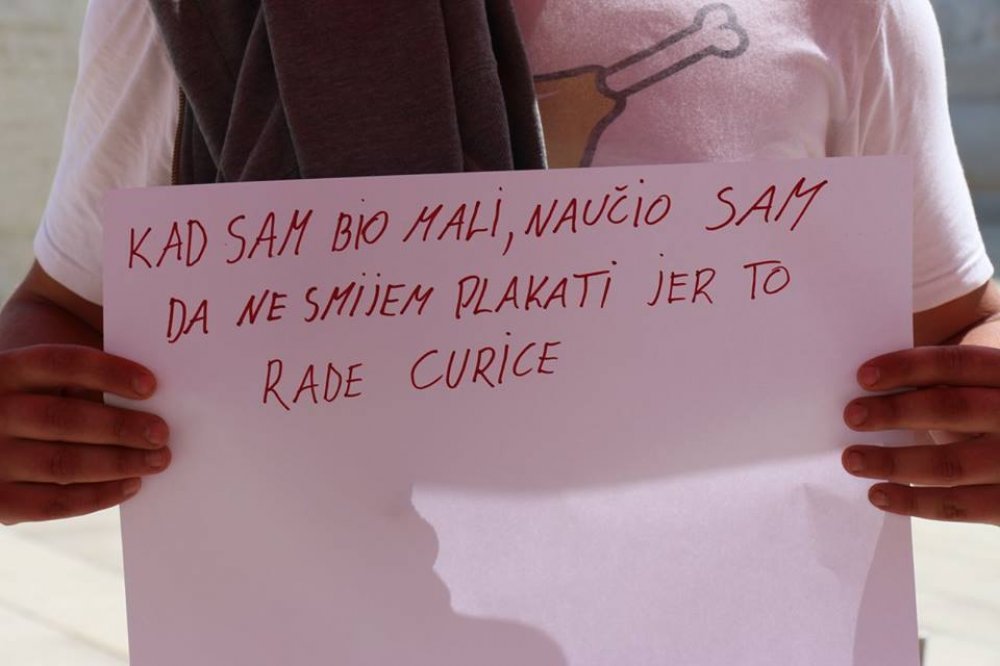 KAD SAM BIO MALI, NAUČIO SAM
DA NE SMIJEM PLAKATI JER TO
RADE CURICE